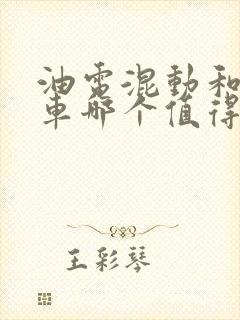 油電混動和
車哪个值得
王彩琴